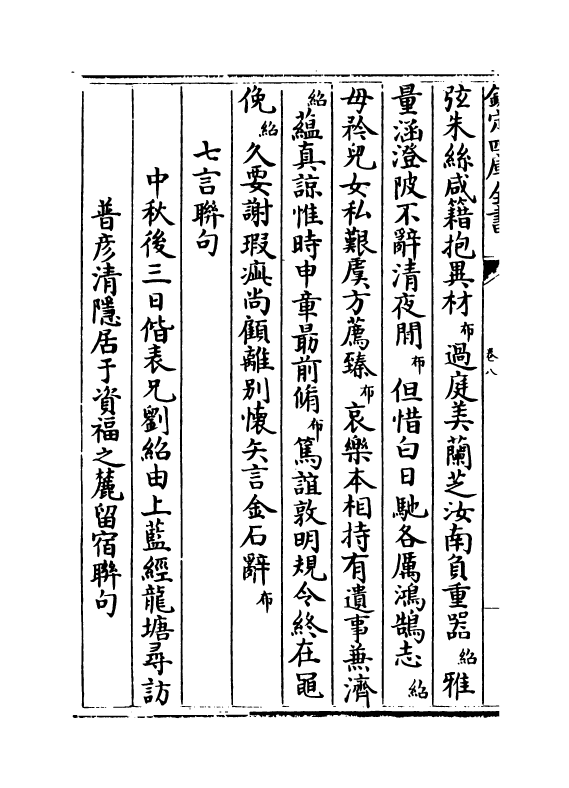 欽定四庫全書
卷八
弦朱絲咸籍抱異材布過庭美蘭芝汝南負重器紹雅
量涵澄陂不辭清夜閒布但惜白日馳各厲鴻鵠志紹
毋矜兒女私艱虞方薦臻布哀樂本相持有遺事兼濟
紹蘊真諒惟時申章勗前脩布篤誼敦明規令終在黽
俛紹久要謝瑕疵尚顧離別懷矢言金石辭布
七言聯句
中秋後三日偕表兄劉紹由上藍經龍塘尋訪
普彥清隱居于資福之麓留宿聯句